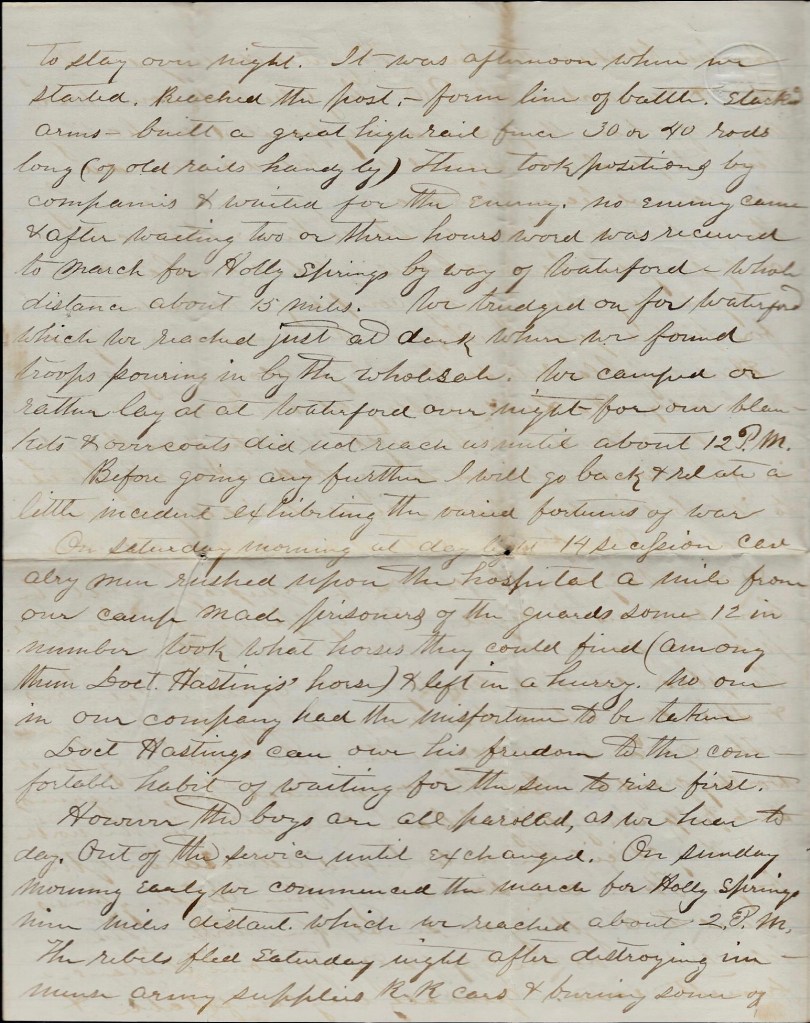 to stay over night. It was afternoon when we
started. Reached the post, – form line of battle. Stack
arms – built a great high rail fence 30 or 40 rods
long (of old rails handy by) then took positions by
companies & waited for the enemy. no enemy came
& after waiting two or three hours word was received
to march for Holly Springs by way of Waterford – whole
distance about 15 miles. We trudged on for Waterford
which we reached just at dark when we found
troops pouring in by the wholesale. We camped or
rather lay at at Waterford over night for our blan-
kets & overcoats did not reach us until about 12 P.M.
Before going any further I will go back & relate a
little incident exhibiting the varied fortunes of war
On saturday morning at day light 14 secession cav
alry men rushed upon the hospital a mile from
our camp made prisoners of the guards some 12 in
number took what horses they could find (among
them Doct. Hastings' horse) & left in a hurry. No one
in our company had the misfortune to be taken
Doct Hastings can owe his freedom to the com-
fortable habit of waiting for the sun to rise first.
However the boys are all parolled, as we hear to
day. Out of the service until exchanged. On sunday
morning early we commenced the march for Holly Springs
nine miles distant. which we reached about 2. P.M.
The rebels fled Saturday night after destroying im-
mense army supplies R.R cars & burning some of